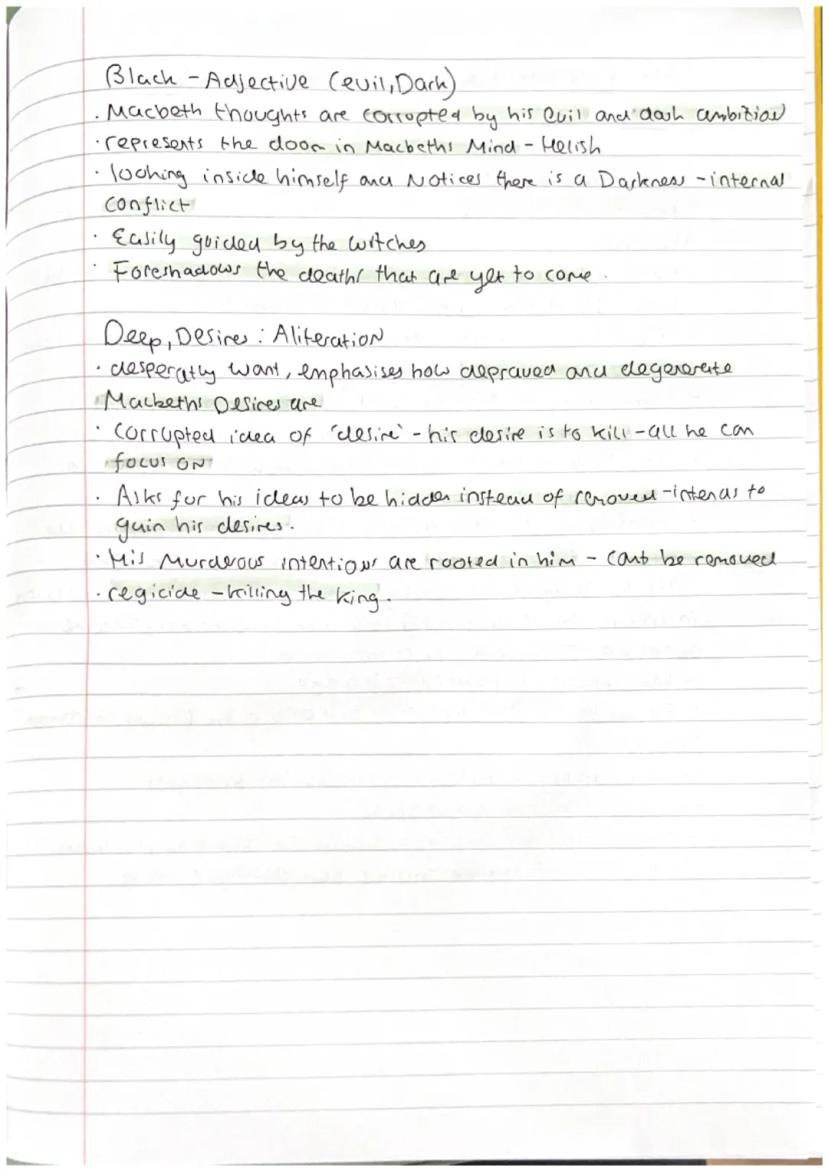 Black - Adjective (evil, Dark)
· Macbeth thoughts are corrupted by his Evil and dark ambition
· represents the doom in Macbeths Mind - Helish
· looking inside himself and Notices there is a Darkness - internal
conflict
· Easily guided by the witches
· Foreshadows the deaths that are yet to come.
Deep, Desires : Aliteration
· desperatly want, emphasises how depraved and degenerate
Macbeths Desires are
· Corrupted idea of 'desire' - his desire is to kill - all he can
focus on
· Asks for his ideas to be hidden instead of removed - intends to
gain his desires.
· His Murderous intentions are rooted in him - cant be removed
· regicide - killing the King.